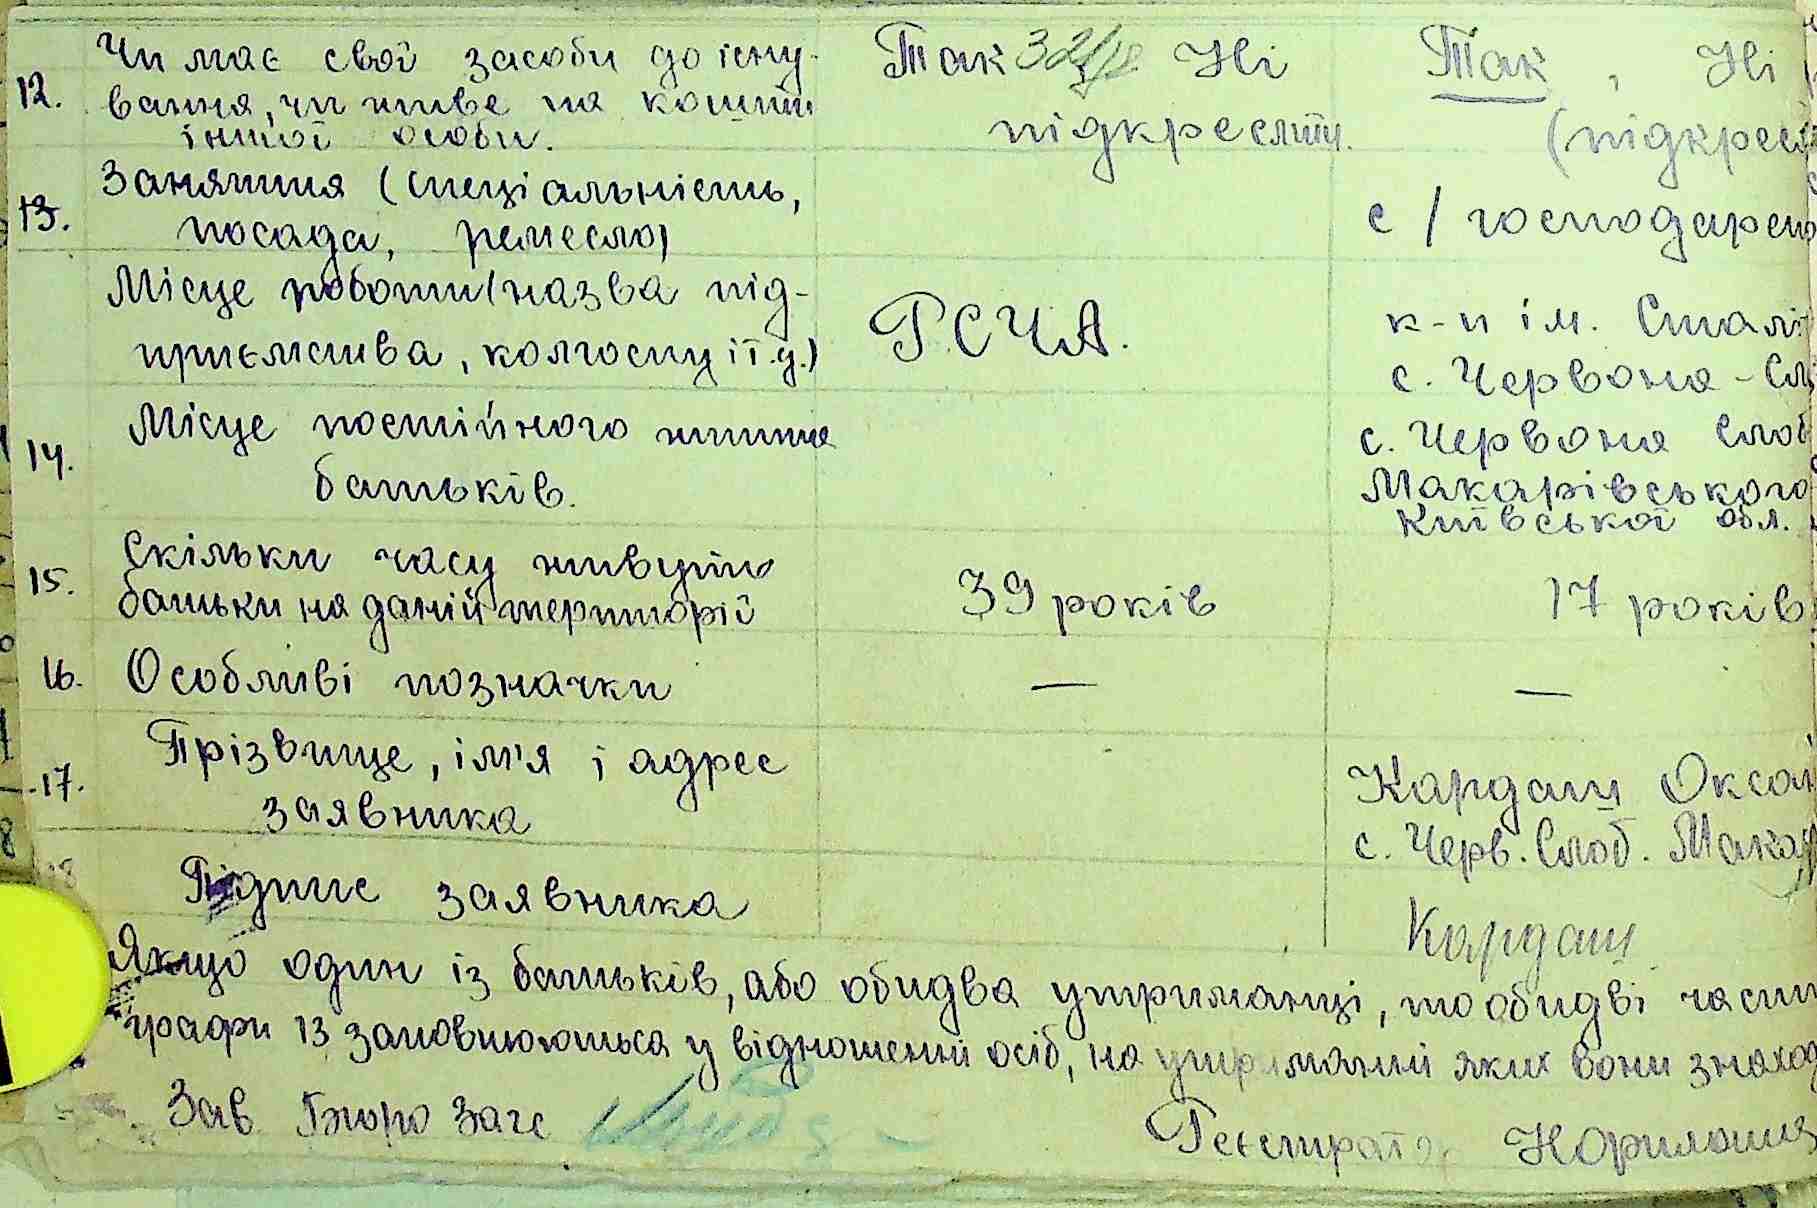 12. Чи має свої засоби до існу-
вання, чи живе на кошти
іншої особи.
Так Ні
підкреслити.
Так, Ні
(підкресл
13. Заняття (спеціальність,
посада, ремесло)
с/господарст
Місце роботи (назва під-
приємства, колгоспу і т.д.)
РСЧА.
к-п ім. Сталі
с. Червона-Сл
14. Місце постійного життя
батьків.
с. Червона Слоб
Макарівського
Київської обл.
15. Скільки часу живуть
батьки на даній території
39 років
17 років
16. Особливі позначки
—
—
17. Прізвище, ім'я і адрес
заявника
Кардаш Оксан
с. Черв. Слоб. Макар
18
Підпис заявника
Кардаш
Якщо один із батьків, або обидва утриманці, то обидві части
графи 13 заповнюються у відношенні осіб, на утриманні яких вони знаход
Зав Бюро Загс
Реєстратор